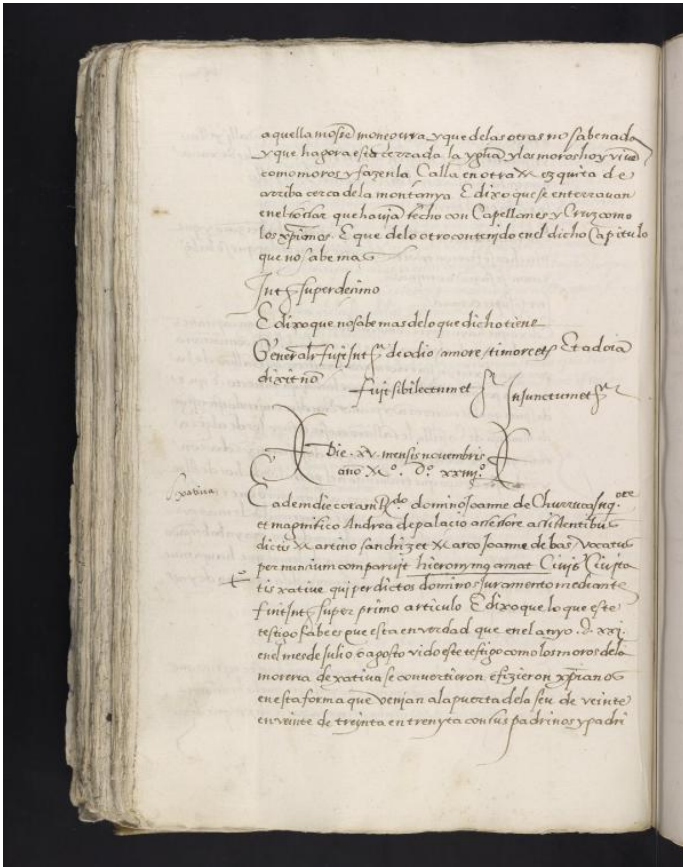 aquella mo era y que delas otras no sabe nada
y que hagora esta cerrada la yglia y los moros hoy vive
como moros y fazen la Çalla en otra Mezquita de
arriba cerca dela montanya. E dixo que se enterravan
en el que havia fecho con Capellanes y Cruz como
los xpianos. E que delo otro contenido en el dicho Capitulo
que no sabe mas
Intr super decimo
E dixo que no sabe mas delo que dicho tiene
Generalr fuit Intr de odio / amore / timore etc Et ad oia
dixit no
fuit sibi lectum et Injunctum etc
Die . xv. mensis novembris
año Mº. Dº. xxiiijº
Xativa
Eadem die coram Rdo domino Joanne de Churruca Inqore
et magnifico Andrea de palacio assessore assistentibus
dictis Martino sanchiz et Marco Joanne de bas / vocatus
per nuncium comparuit hieronymus amat Civis Civita
tis xative qui per dictos dominos juramento mediante
fuit Intr super primo articulo E dixo que lo que este
testigo sabe es que esta en verdad que en el anyo .d. xxi.
en el mes de Julio o agosto vido este testigo como los moros dela
moreria de xativa se convertieron e fizieron xpianos
en esta forma que venian ala puerta dela seu de veinte
en veinte de treynta en trenyta con sus padrinos y padri